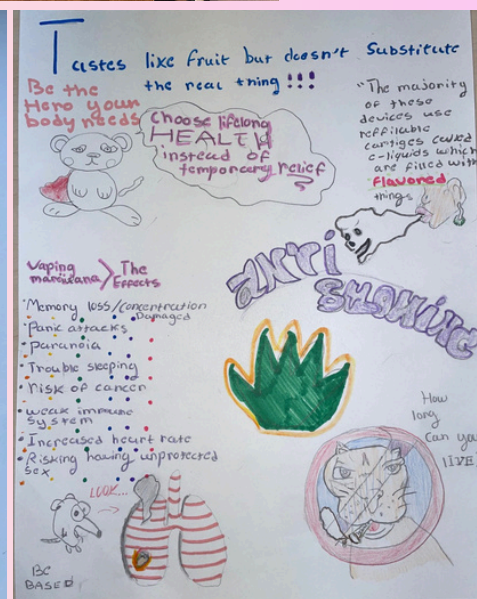 Tastes like fruit but doesn't Substitute
the real thing!!!
Be the
Hero your
body needs
choose lifelong
HEALTH
instead of
temporary relief
"The majority
of these
devices use
reffilable
cartiges called
e-liquids which
are filled with
flavored
things
ANTI
SMOKING
Vaping
marijuana > The
Effects
•Memory loss/concentration
Damaged
•Panic attacks
•Paranoia
•Trouble sleeping
•risk of cancer
•weak immune
System
•Increased heart rate
•Risking having unprotected
sex
How
long
Can you
live
LOOK...
BC
BASED